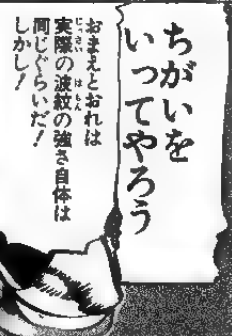 ちがいを
いってやろう
おまえとおれは
実際の波紋の強さ自体は
同じぐらいだ!
しかし!